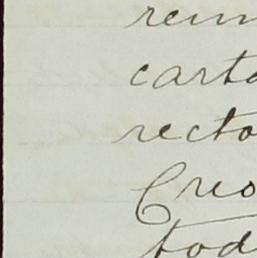 rem
carta
recto
Creo
tod